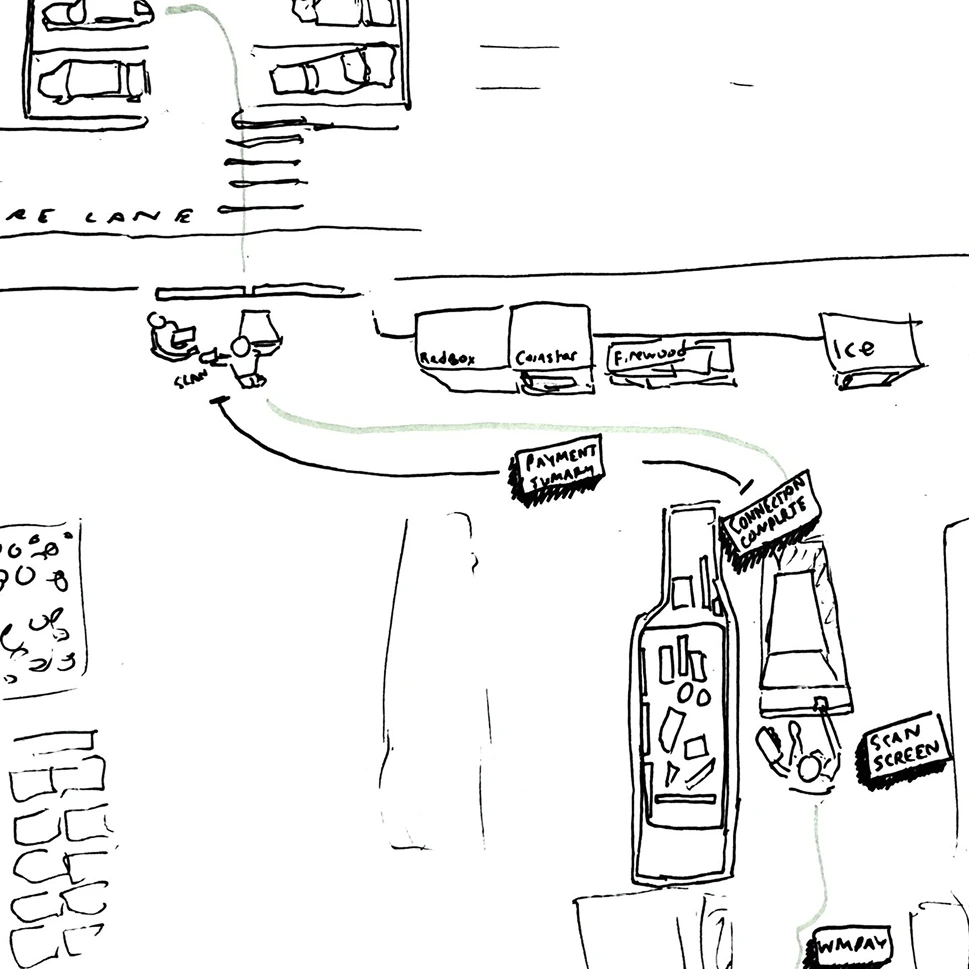 RE LANE
Redbox
Coinstar
Firewood
Ice
SCAN
PAYMENT
SUMARY
CONNECTION
COMPLETE
SCAN
SCREEN
WMPAY